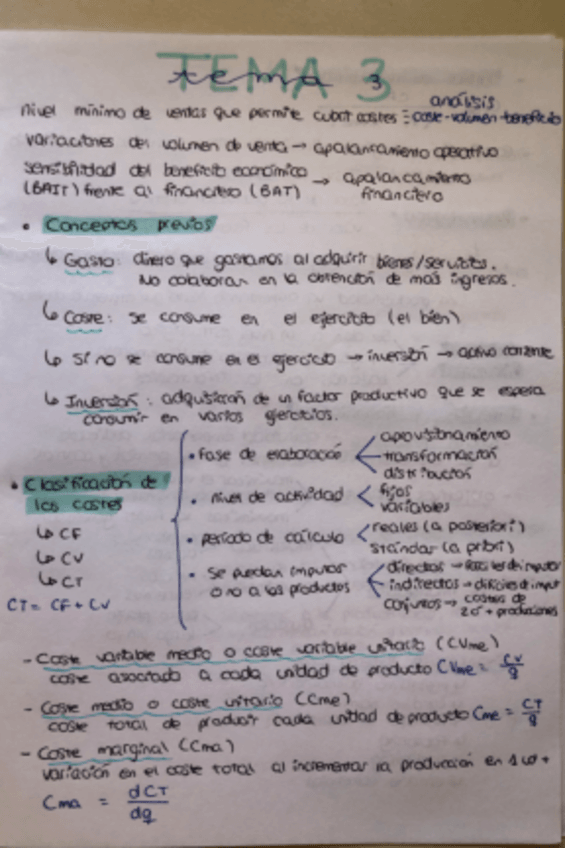 TEMA 3
tema 3
nivel mínimo de ventas que permite cubrir costes = análisis coste-volumen-beneficio
variaciones del volumen de venta → apalancamiento operativo
sensibilidad del beneficio económico
(BAIT) frente al financiero (BAT) → apalancamiento financiero
• Conceptos previos
↳ Gasto: dinero que gastamos al adquirir bienes/servicios.
No colaboran en la obtención de más ingresos.
↳ Coste: se consume en el ejercicio (el bien)
↳ Si no se consume en el ejercicio → inversión → activo corriente
↳ Inversión: adquisición de un factor productivo que se espera
consumir en varios ejercicios.
• Clasificación de
los costes
↳ CF
↳ CV
↳ CT
CT = CF + CV
• fase de elaboración
aprovisionamiento
transformación
distribución
• nivel de actividad
fijos
variables
• periodo de cálculo
reales (a posteriori)
stándar (a priori)
• se puedan imputar
o no a los productos
directos → fáciles de imputar
indirectos → difíciles de imput
conjuntos → costes de
2 o + producciones
- Coste variable medio o coste variable unitario (CVme)
coste asociado a cada unidad de producto CVme = CV/q
- Coste medio o coste unitario (Cme)
coste total de producir cada unidad de producto Cme = CT/q
- Coste marginal (Cma)
variación en el coste total al incrementar la producción en 1 ud +
Cma = dCT/dq